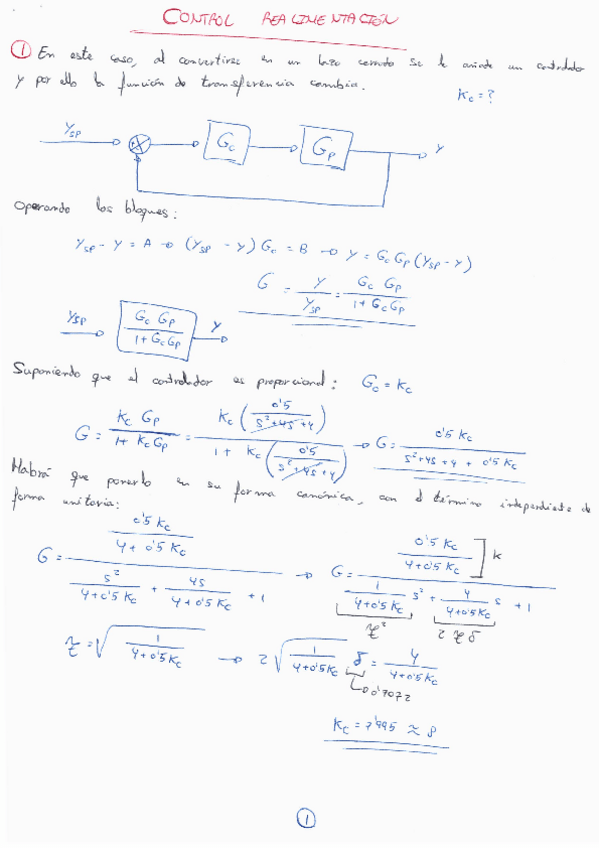 CONTROL REALIMENTACIÓN
① En este caso, al convertirse en un lazo cerrado se le añade un controlador
y por ello la función de transferencia cambia.
Kc = ?
Ysp
Gc
Gp
Y
Operando los bloques:
Ysp - Y = A → (Ysp - Y) Gc = B → Y = Gc Gp (Ysp - Y)
G = Y / Ysp = Gc Gp / 1 + Gc Gp
Ysp
Gc Gp / 1 + Gc Gp
Y
Suponiendo que el controlador es proporcional: Gc = Kc
G = Kc Gp / 1 + Kc Gp = Kc (0'5 / s² + 4s + 4) / 1 + Kc (0'5 / s² + 4s + 4) → G = 0'5 Kc / s² + 4s + 4 + 0'5 Kc
Habrá que ponerlo en su forma canónica, con el término independiente de
forma unitaria:
G = (0'5 Kc / 4 + 0'5 Kc) / (s² / 4 + 0'5 Kc + 4s / 4 + 0'5 Kc + 1) → G = (0'5 Kc / 4 + 0'5 Kc) ] K / (1 / 4 + 0'5 Kc s² + 4 / 4 + 0'5 Kc s + 1)
τ² 2 τ δ
τ = √(1 / 4 + 0'5 Kc) → 2 √(1 / 4 + 0'5 Kc) δ = 4 / 4 + 0'5 Kc
→ 0'7072
Kc = 7'995 ≈ 8
①